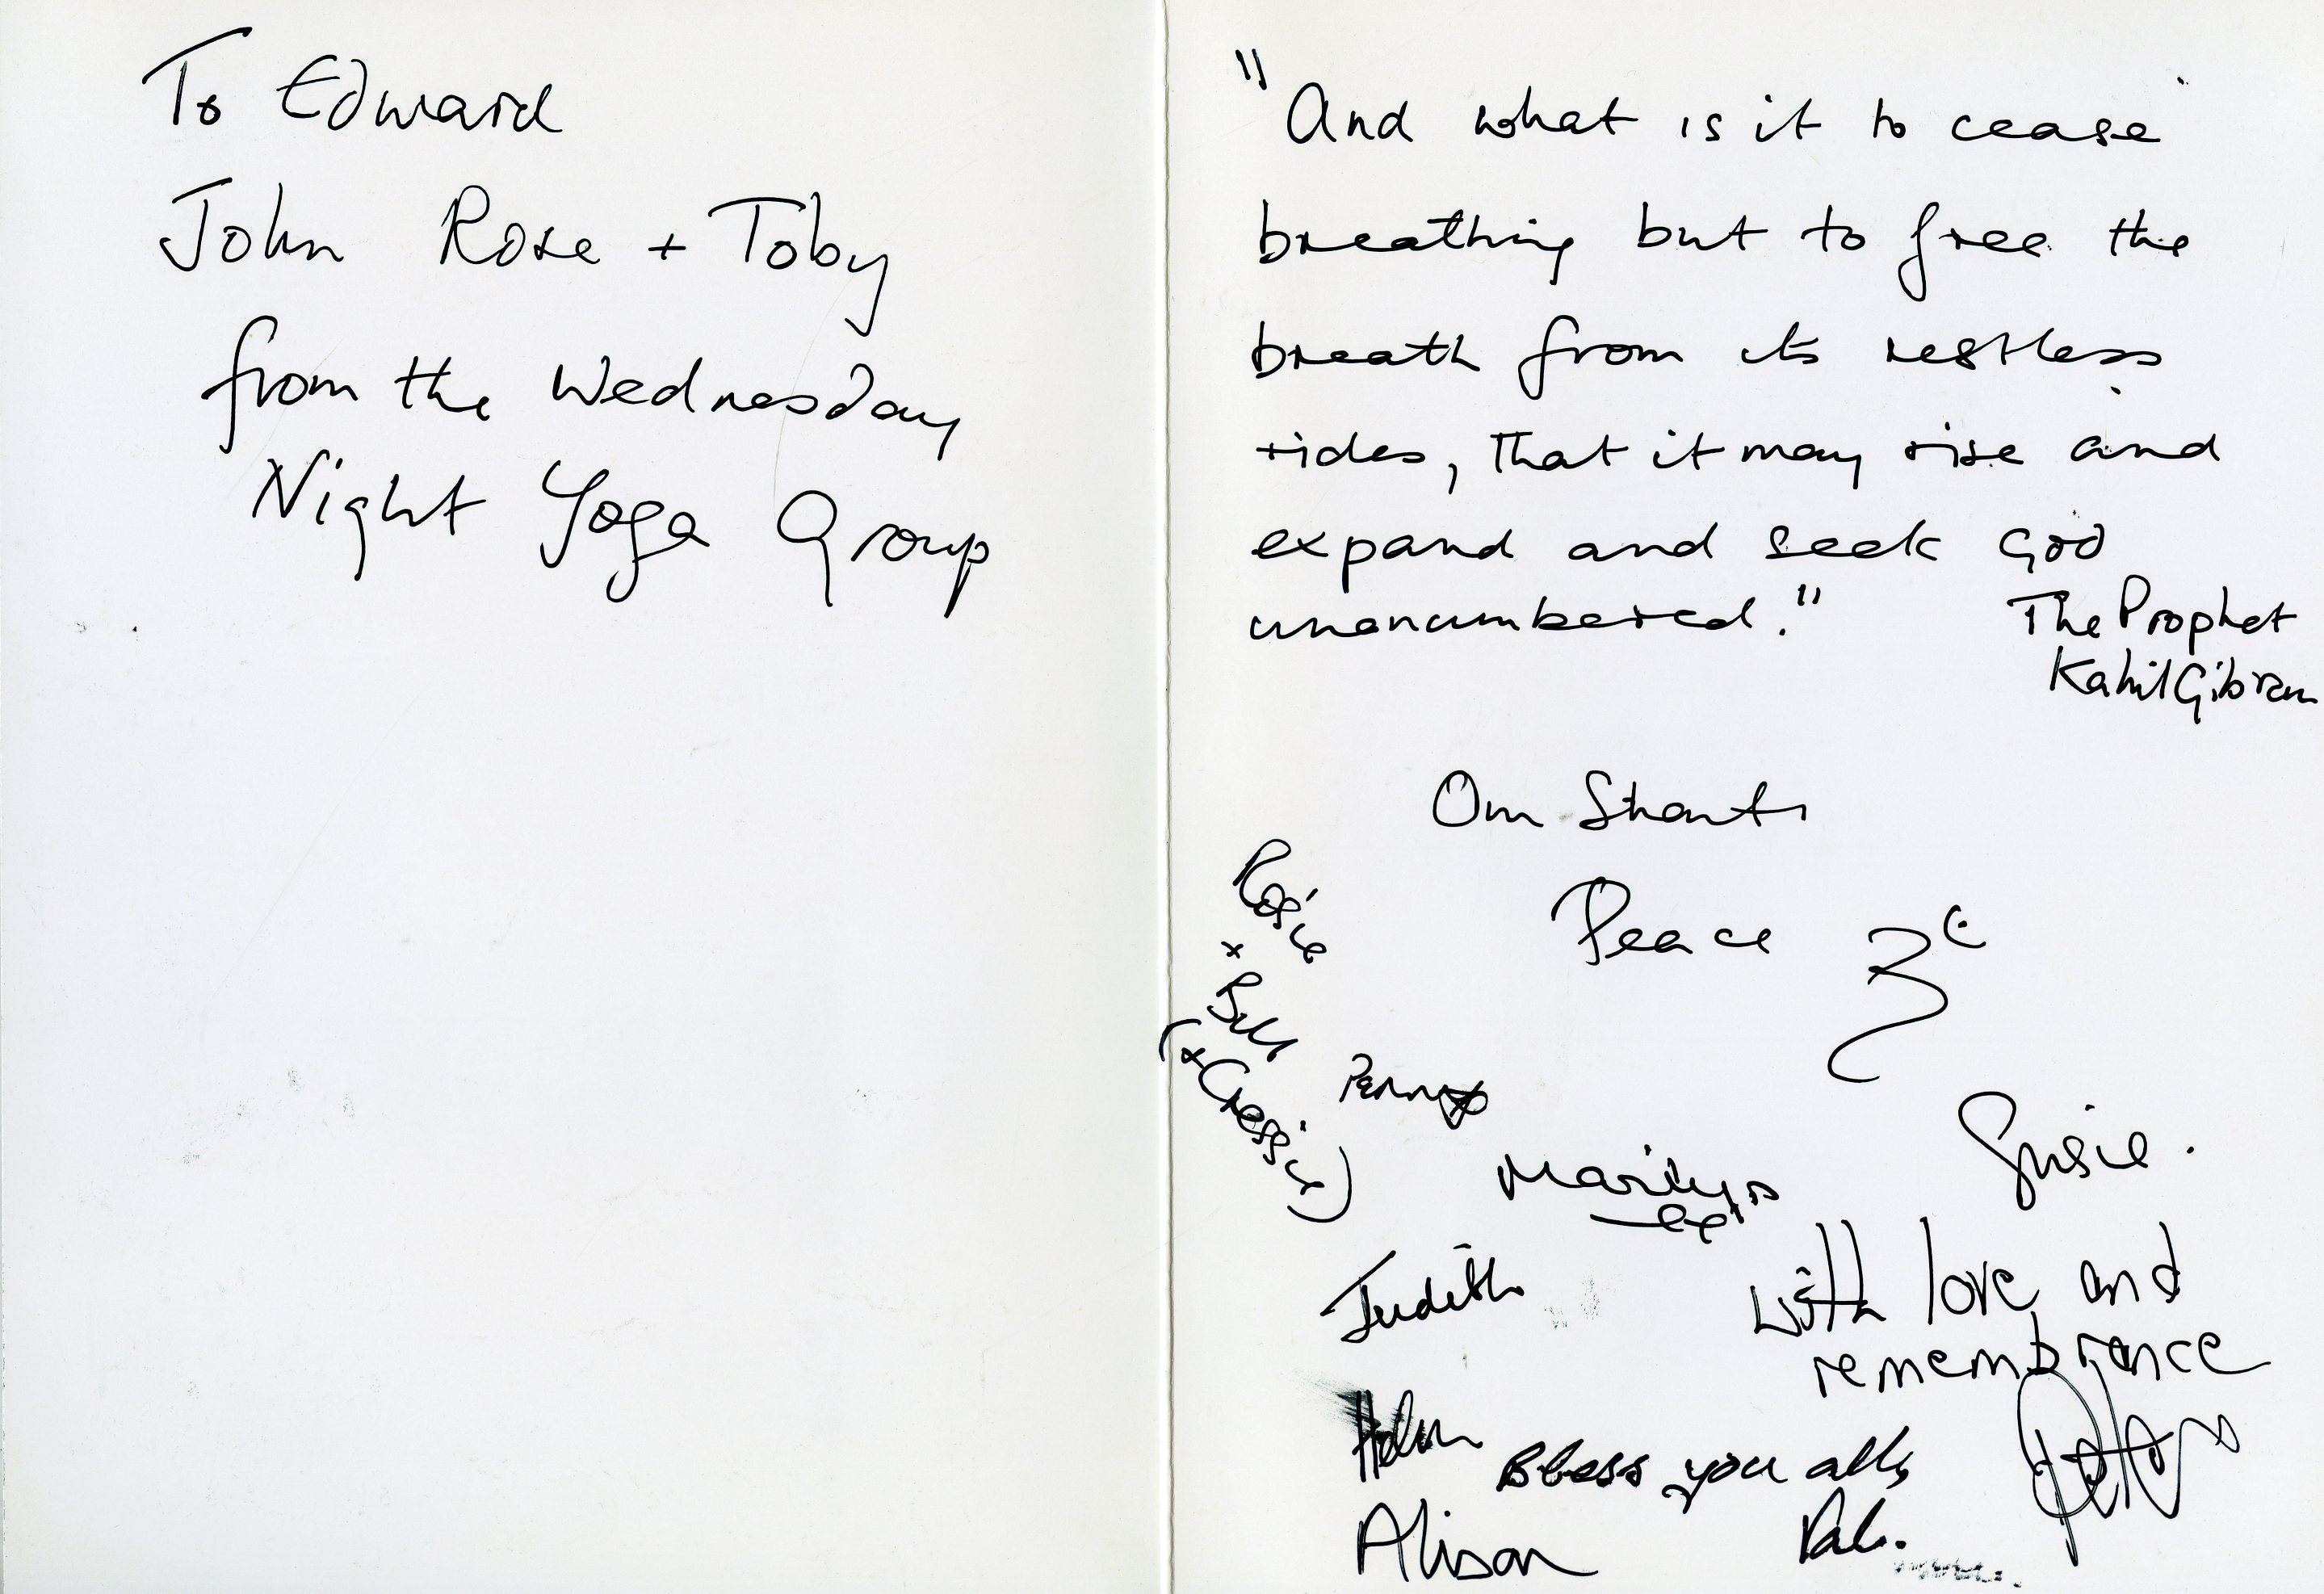 To Edward
John Rose + Toby
from the Wednesday
Night Yoga Group
"And what is it to cease
breathing but to free the
breath from its restless
tides, that it may rise and
expand and seek God
unencumbered."
The Prophet
Kahil Gibran
Om Shanti
Peace
Rosie
+ Bill
(+ Cressie)
Penny
Susie.
Marilyn
Judith
with love and
remembrance
Helen
Bless you all,
Alison